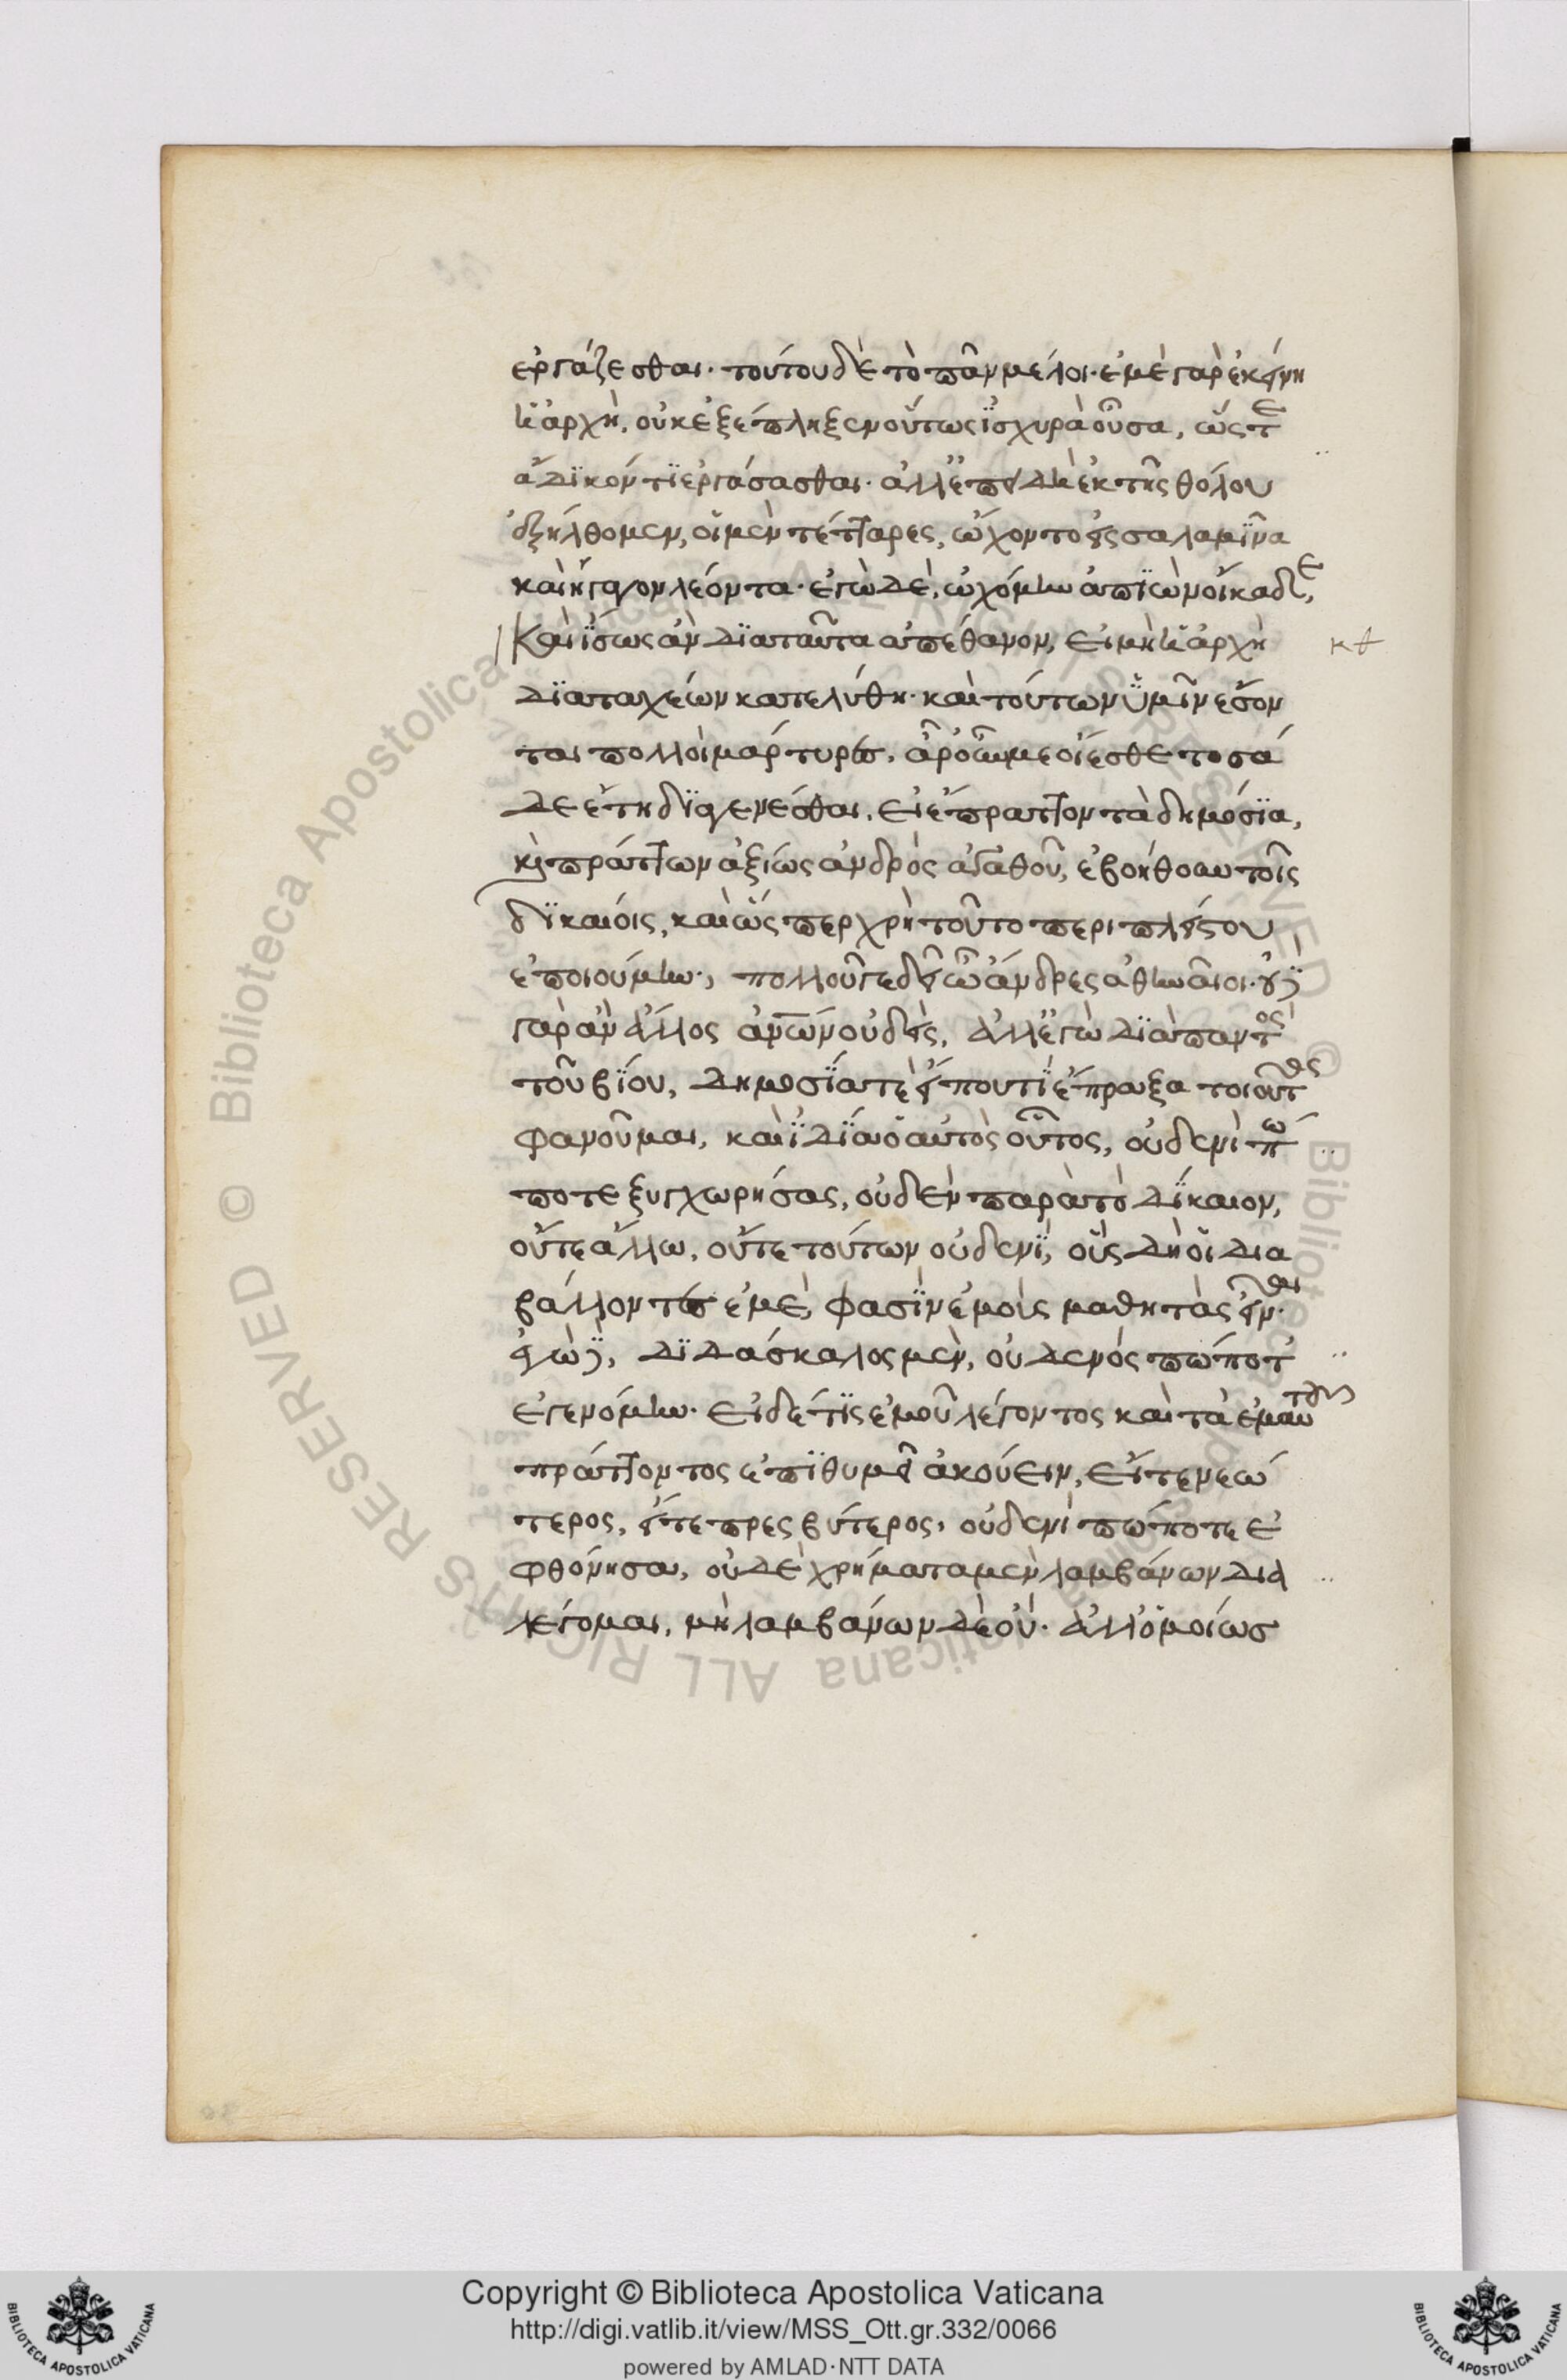 ἐργάζεσθαι· τούτου δὲ τὸ πᾶν μέλοι· ἐμὲ γὰρ ἐκείνη
ἡ ἀρχὴ, οὐκ ἐξέπληξεν οὕτως ἰσχυρὰ οὖσα, ὥςτε
ἄδικόν τι ἐργάσασθαι· ἀλλ' ἐπειδὴ ἐκ τῆς θόλου
ἐξήλθομεν, οἱ μὲν τέτταρες, ὤχοντο εἰς σαλαμῖνα
καὶ ἤγαγον λέοντα· ἐγὼ δὲ, ὠχόμην ἀπιὼν οἴκαδε,
Καὶ ἴσως ἂν διὰ ταῦτα ἀπέθανον, εἰ μὴ ἡ ἀρχὴ κθ
διὰ ταχέων κατελύθη· καὶ τούτων ὑμῖν ἔσον
ται πολλοὶ μάρτυρες, ἆρ' οὖν με οἴεσθε τοσά
δε ἔτη διαγενέσθαι, εἰ ἔπραττον τὰ δημόσια,
καὶ πράττων ἀξίως ἀνδρὸς ἀγαθοῦ, ἐβοήθουν τοῖς
δικαίοις, καὶ ὥςπερ χρὴ τοῦτο περι πλείστου
ἐποιούμην·, πολλοῦ γε δεῖ ὦ ἄνδρες ἀθηναῖοι· οὐδὲ
γὰρ ἂν ἄλλος ἀνθρώπων οὐδεὶς, ἀλλ' ἐγὼ διὰ παντὸς
τοῦ βίου, δημοσίᾳ τὲ εἴ πού τι ἔπραξα τοιοῦτος
φανοῦμαι, καὶ ἰδίᾳ ὁ αὐτὸς οὗτος, οὐδενὶ πώ
ποτε ξυγχωρήσας, οὐδὲν παρὰ τὸ δίκαιον,
οὔτε ἄλλω, οὔτε τούτων οὐδενὶ, οὓς δὴ οἱ δια
βάλλοντες ἐμὲ, φασὶν ἐμοὺς μαθητὰς εἶναι·
ἐγὼ δὲ, διδάσκαλος μὲν, οὐδενὸς πώποτ'
ἐγενόμην· εἰ δέ τις ἐμοῦ λέγοντος καὶ τὰ ἐμαυτοῦ
πράττοντος ἐπιθυμεῖ ἀκούειν, εἴτε νεώ
τερος, εἴτε πρεσβύτερος, οὐδενὶ πώποτε ἐ
φθόνησα, οὐδὲ χρήματα μὲν λαμβάνων δια
λέγομαι, μὴ λαμβάνων δὲ οὔ· ἀλλ' ὁμοίως
Copyright © Biblioteca Apostolica Vaticana
http://digi.vatlib.it/view/MSS_Ott.gr.332/0066
powered by AMLAD·NTT DATA